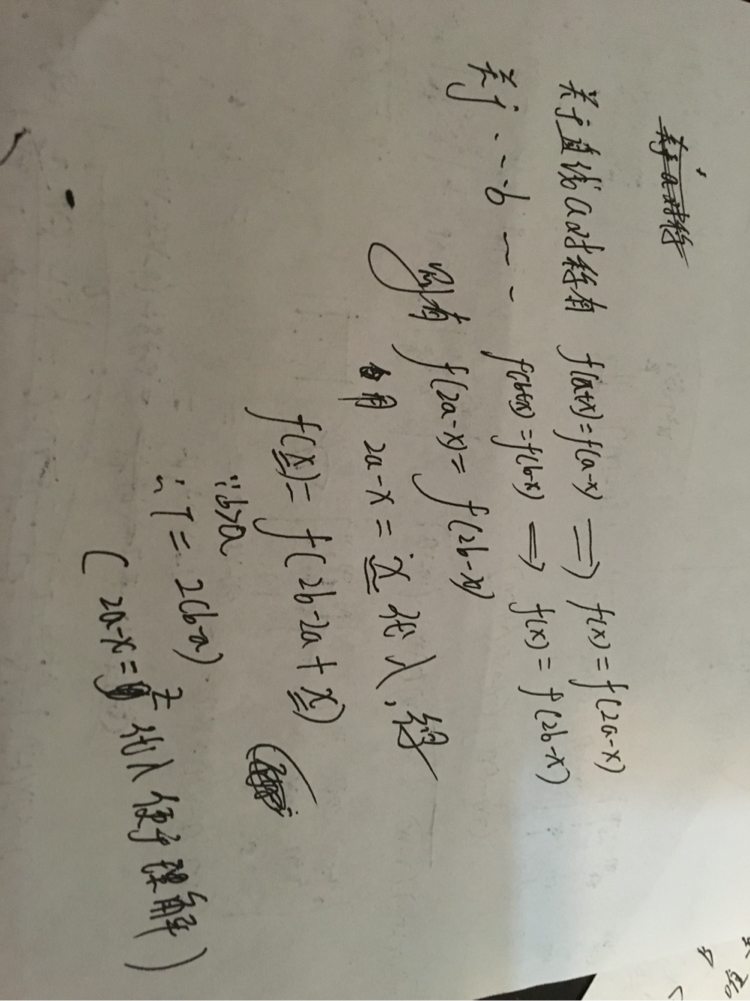 关于直线a对称有 f(a+x)=f(a-x) ⇒ f(x)=f(2a-x)
关于 ---b --- f(b+x)=f(b-x) ⇒ f(x)=f(2b-x)
则有 f(2a-x)=f(2b-x)
用 2a-x=x 代入,得
f(x)=f(2b-2a+x)
∵b>a
∴T=2(b-a)
(2a-x=z代入便于理解)